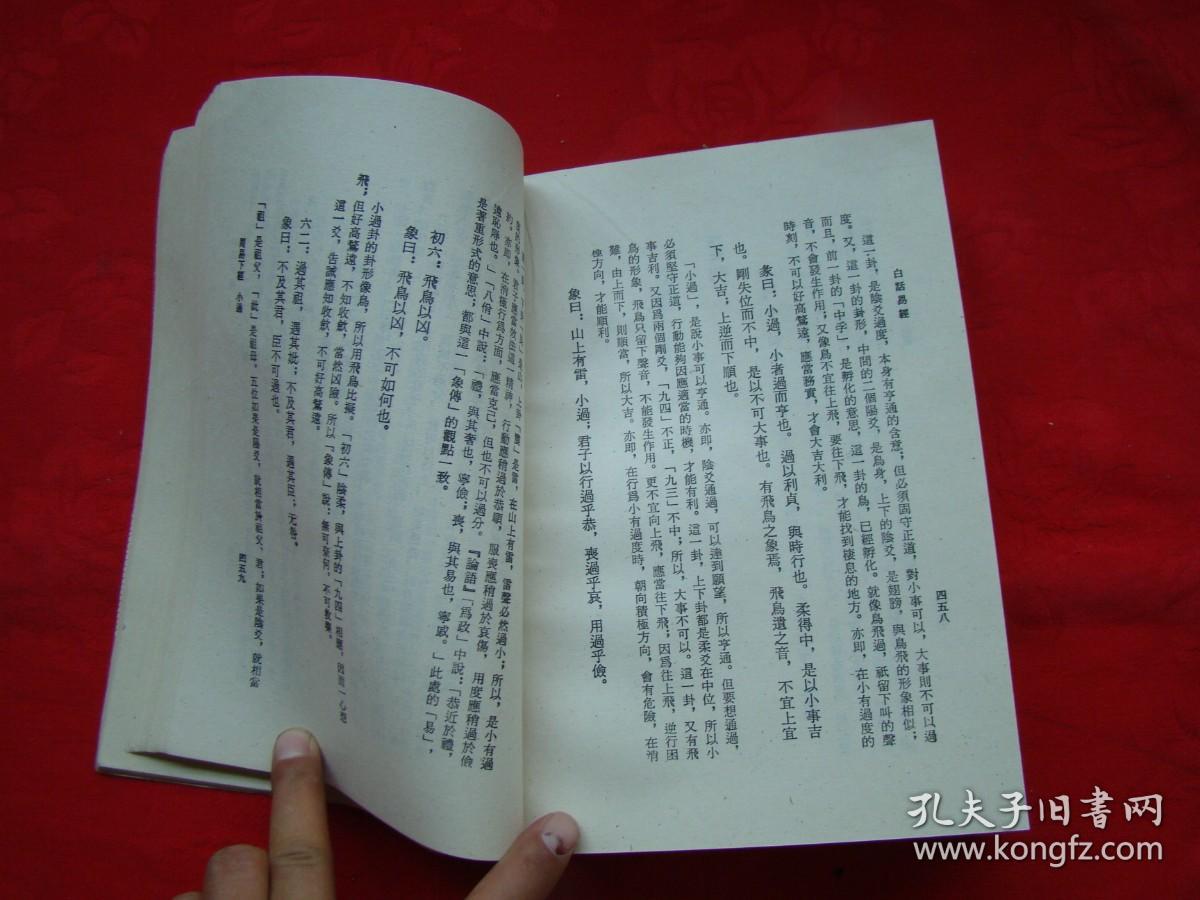 白話易經
四五八
這一卦，是陰爻過度，本身有亨通的含意；但必須固守正道，對小事可以，大事則不可以過
度。又，這一卦的卦形，中間的二個陽爻，是鳥身，上下的陰爻，是翅膀，與鳥飛的形象相似；
而且，前一卦的「中孚」，是孵化的意思，這一卦的鳥，已經孵化。就像鳥飛過，祇留下叫的聲
音，不會發生作用；又像鳥不宜往上飛，要往下飛，才能找到棲息的地方。亦即，在小有過度的
時刻，不可以好高騖遠，應當務實，才會大吉大利。
彖曰：小過，小者過而亨也。過以利貞，與時行也。柔得中，是以小事吉
也。剛失位而不中，是以不可大事也。有飛鳥之象焉，飛鳥遺之音，不宜上宜
下，大吉，上逆而下順也。
「小過」，是說小事可以亨通。亦即，陰爻通過，可以達到願望，所以亨通。但要想通過，
必須堅守正道，行動能夠因應適當的時機，才能有利。這一卦，上下卦都是柔爻在中位，所以小
事吉利。又因為兩個剛爻，「九四」不正，「九三」不中；所以，大事不可以。這一卦，又有飛
鳥的形象，飛鳥只留下聲音，不能發生作用。更不宜向上飛，應當往下飛；因爲往上飛，逆行困
難，由上而下，則順當，所以大吉。亦即，在行爲小有過度時，朝向積極方向，會有危險，在消
極方向，才能順利。
象曰：山上有雷，小過；君子以行過乎恭，喪過乎哀，用過乎儉。
是雷，在山上有雷，雷聲必然過小；所以，是小有過
君子應當效由這一精神，行動應稍過於恭順，服喪應稍過於哀傷，用度應稍過於儉
約。亦即，在消極行為方面，應當克己，但也不可以過分。『論語』「爲政」中說：「恭近於禮，
遠恥辱也。」「八佾」中說：「禮，與其奢也，寧儉；喪，與其易也，寧戚。」此處的「易」，
是著重形式的意思；都與這一「象傳」的觀點一致。
初六：飛鳥以凶。
象曰：飛鳥以凶，不可如何也。
小過卦的卦形像鳥，所以用飛鳥比擬。「初六」陰柔，與上卦的「九四」相應，因而一心想
飛；但好高騖遠，不知收歛，當然凶險。所以「象傳」說：無可奈何，不可救藥。
這一爻，告誡應知收歛，不可好高騖遠。
六二：過其祖，遇其妣；不及其君，遇其臣；无咎。
象曰：不及其君，臣不可過也。
「祖」是祖父，「妣」是祖母。五位如果是陽爻，就相當於祖父、君；如果是陰爻，就相當
周易下經　小過
四五九
孔夫子旧書网
www.kongfz.com